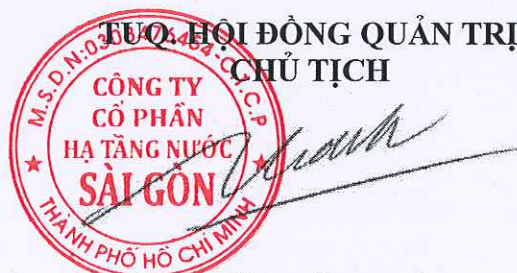 TUQ. HỘI ĐỒNG QUẢN TRỊ
CHỦ TỊCH
CÔNG TY
CỔ PHẦN
HẠ TẦNG NƯỚC
SÀI GÒN
THÀNH PHỐ HỒ CHÍ MINH